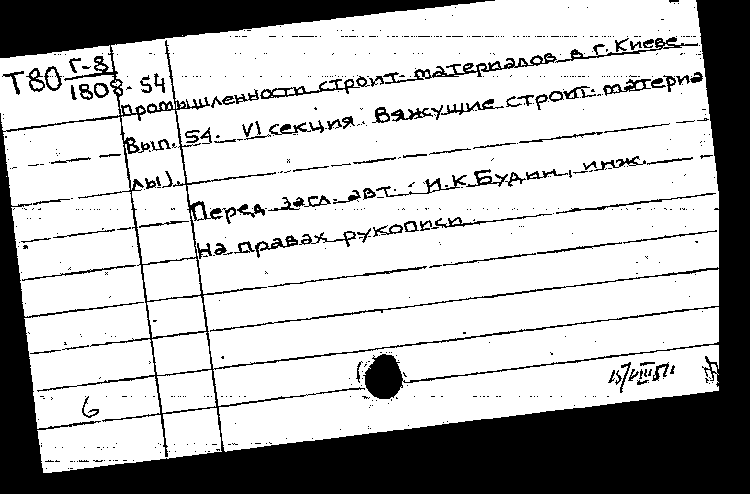 Т80 Г-8
1808-54
промышленности строит. материалов в г. Киеве.
Вып. 54. VI секция. Вяжущие строит. материа
лы).
Перед загл. авт.: И.К.Будин, инж.
На правах рукописи.
6